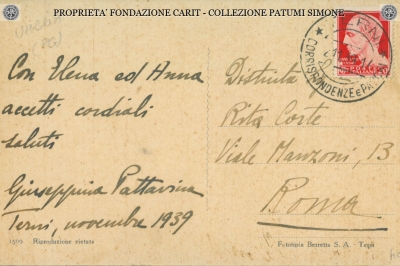 PROPRIETA' FONDAZIONE CARIT - COLLEZIONE PATUMI SIMONE
Con Elena ed Anna
accetti cordiali
saluti
Giuseppina Pattavina
Terni, novembre 1939
Distinta
Rita Corte
Viale Manzoni, 13
Roma
CORRISPONDENZE E PACCHI
Riproduzione vietata
Fototipia Berretta S. A. - Terni